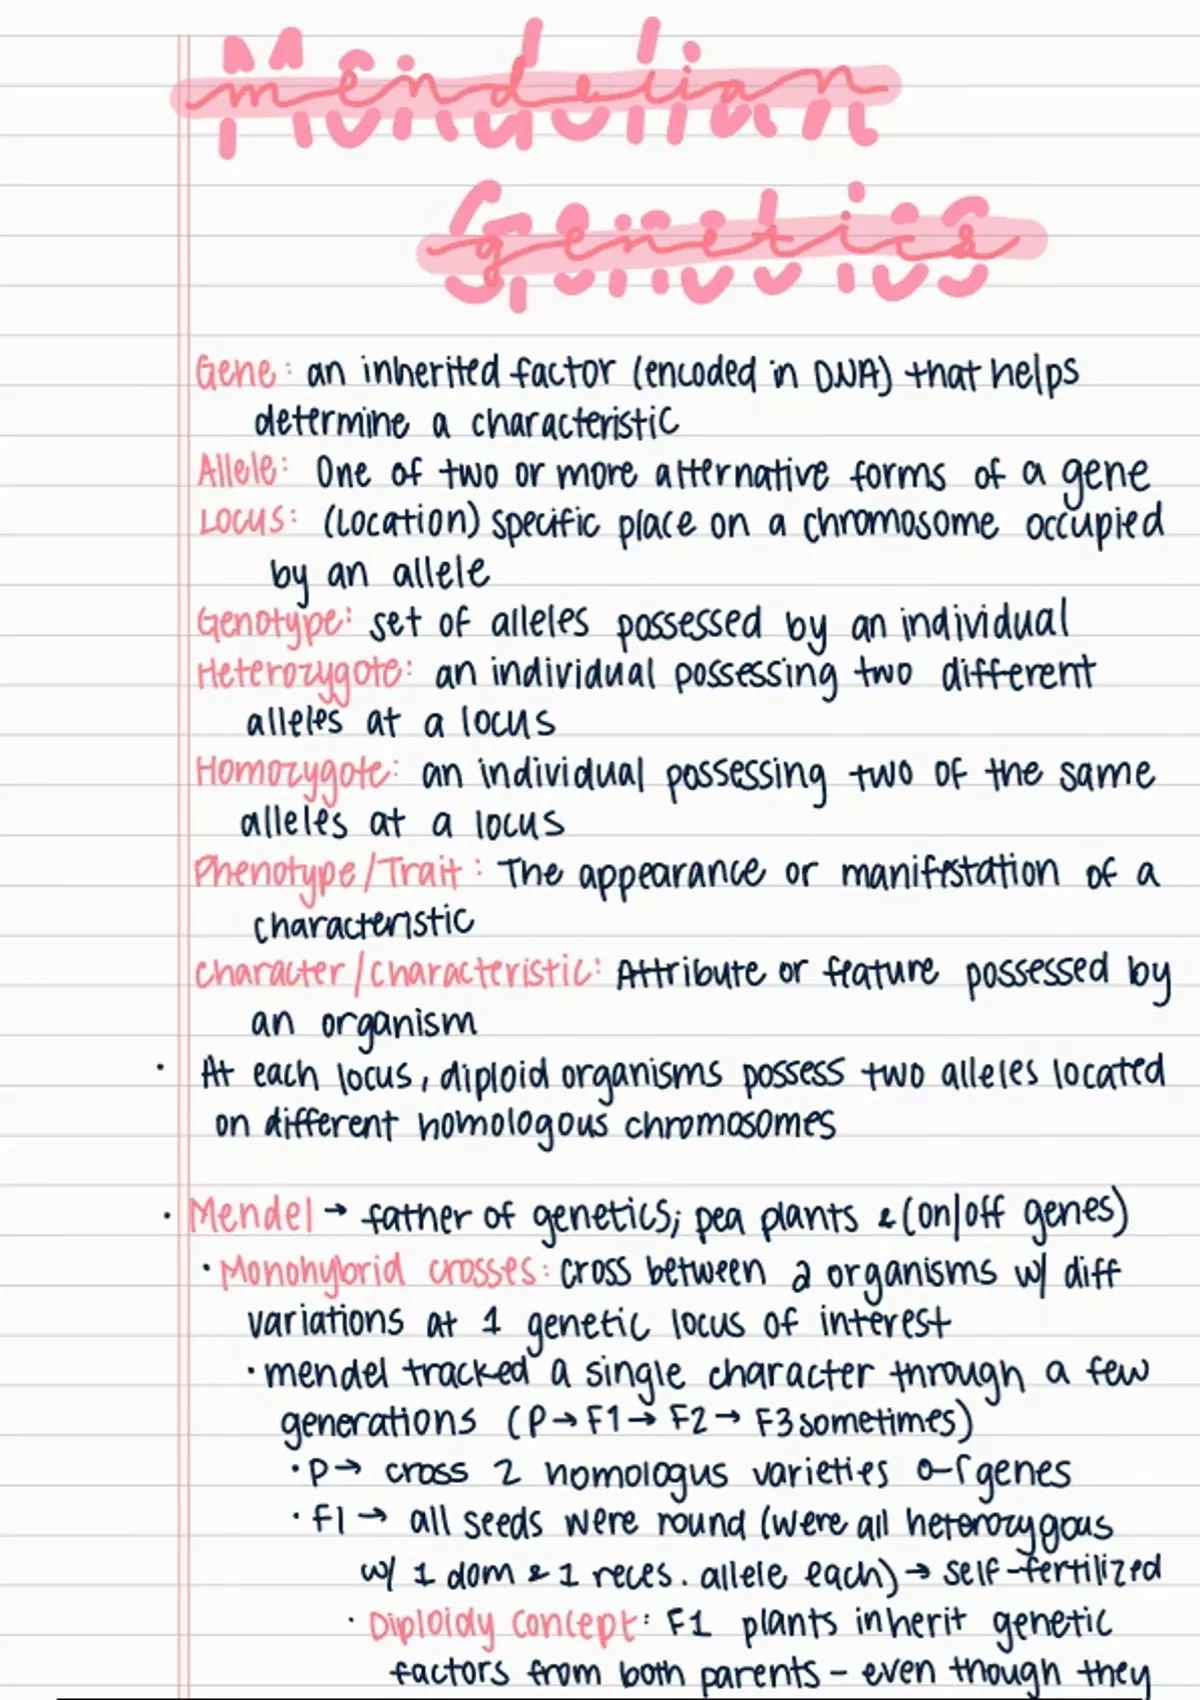 Mendelian
Genetics
Gene: an inherited factor (encoded in DNA) that helps
determine a characteristic
Allele: One of two or more alternative forms of a gene
Locus: (location) specific place on a chromosome occupied
by an allele
Genotype: set of alleles possessed by an individual
Heterozygote: an individual possessing two different
alleles at a locus
Homozygote: an individual possessing two of the same
alleles at a locus
Phenotype/Trait: The appearance or manifestation of a
characteristic
Character/Characteristic: Attribute or feature possessed by
an organism
· At each locus, diploid organisms possess two alleles located
on different homologous chromosomes
· Mendel → father of genetics; pea plants & (on/off genes)
· Monohybrid crosses: cross between 2 organisms w/ diff
variations at 1 genetic locus of interest
· mendel tracked a single character through a few
generations (P→F1→F2→F3 sometimes)
· P→ cross 2 homologus varieties of genes
· F1 → all seeds were round (were all heterozygous
w/ 1 dom & 1 reces. allele each) → self-fertilized
· Diploidy Concept: F1 plants inherit genetic
factors from both parents - even though they